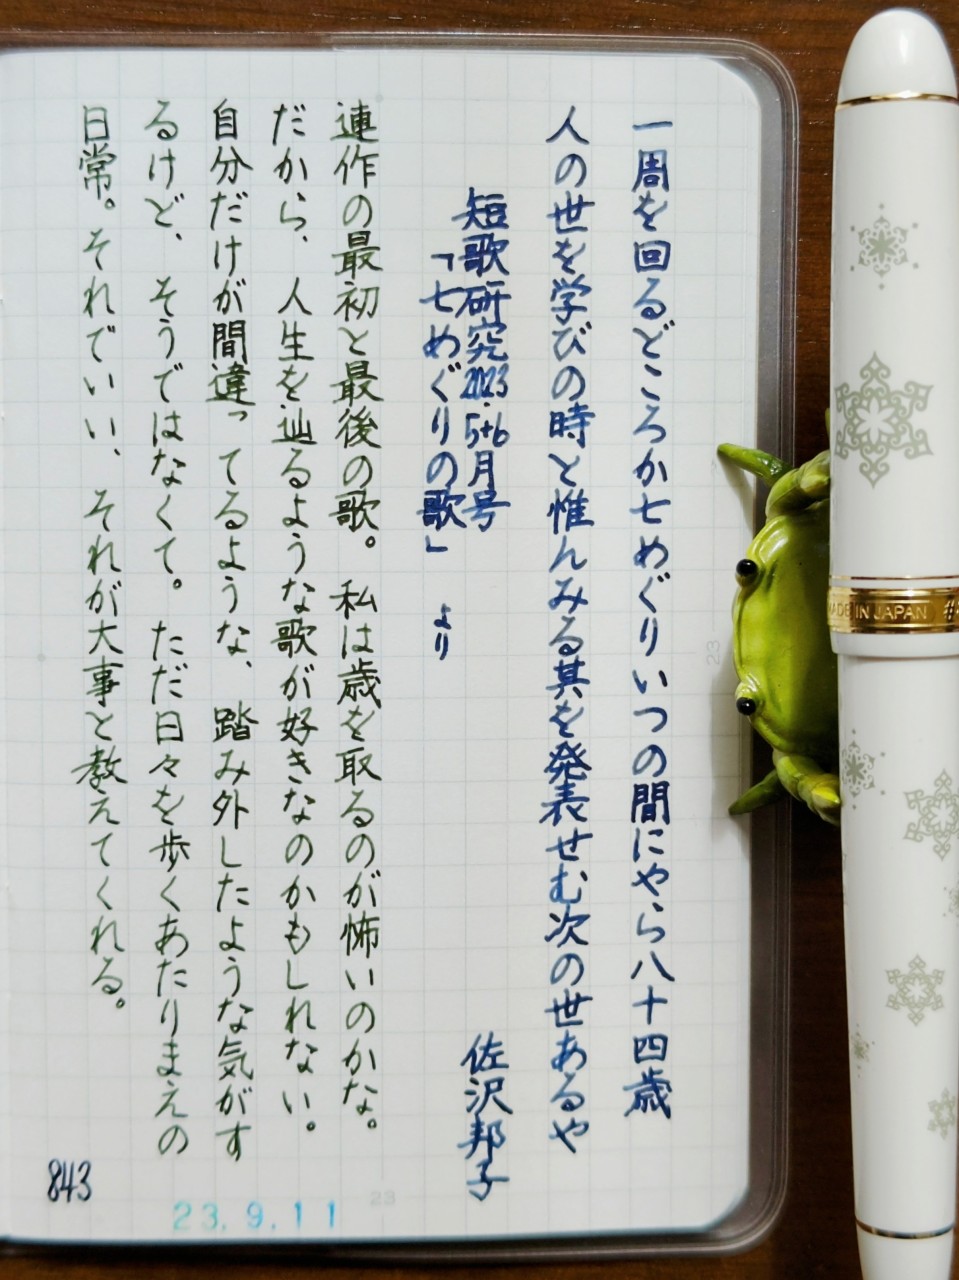 一周を回るどころか七めぐりいつの間にやら八十四歳
人の世を学びの時と惟んみる其を発表せむ次の世あるや
短歌研究2023.5+6月号
「七めぐりの歌」 より
佐沢邦子
連作の最初と最後の歌。私は歳を取るのが怖いのかな。
だから、人生を辿るような歌が好きなのかもしれない。
自分だけが間違ってるような、踏み外したような気がす
るけど、そうではなくて。ただ日々を歩くあたりまえの
日常。それでいい、それが大事と教えてくれる。
843
23.9.11
23
23
MADE IN JAPAN